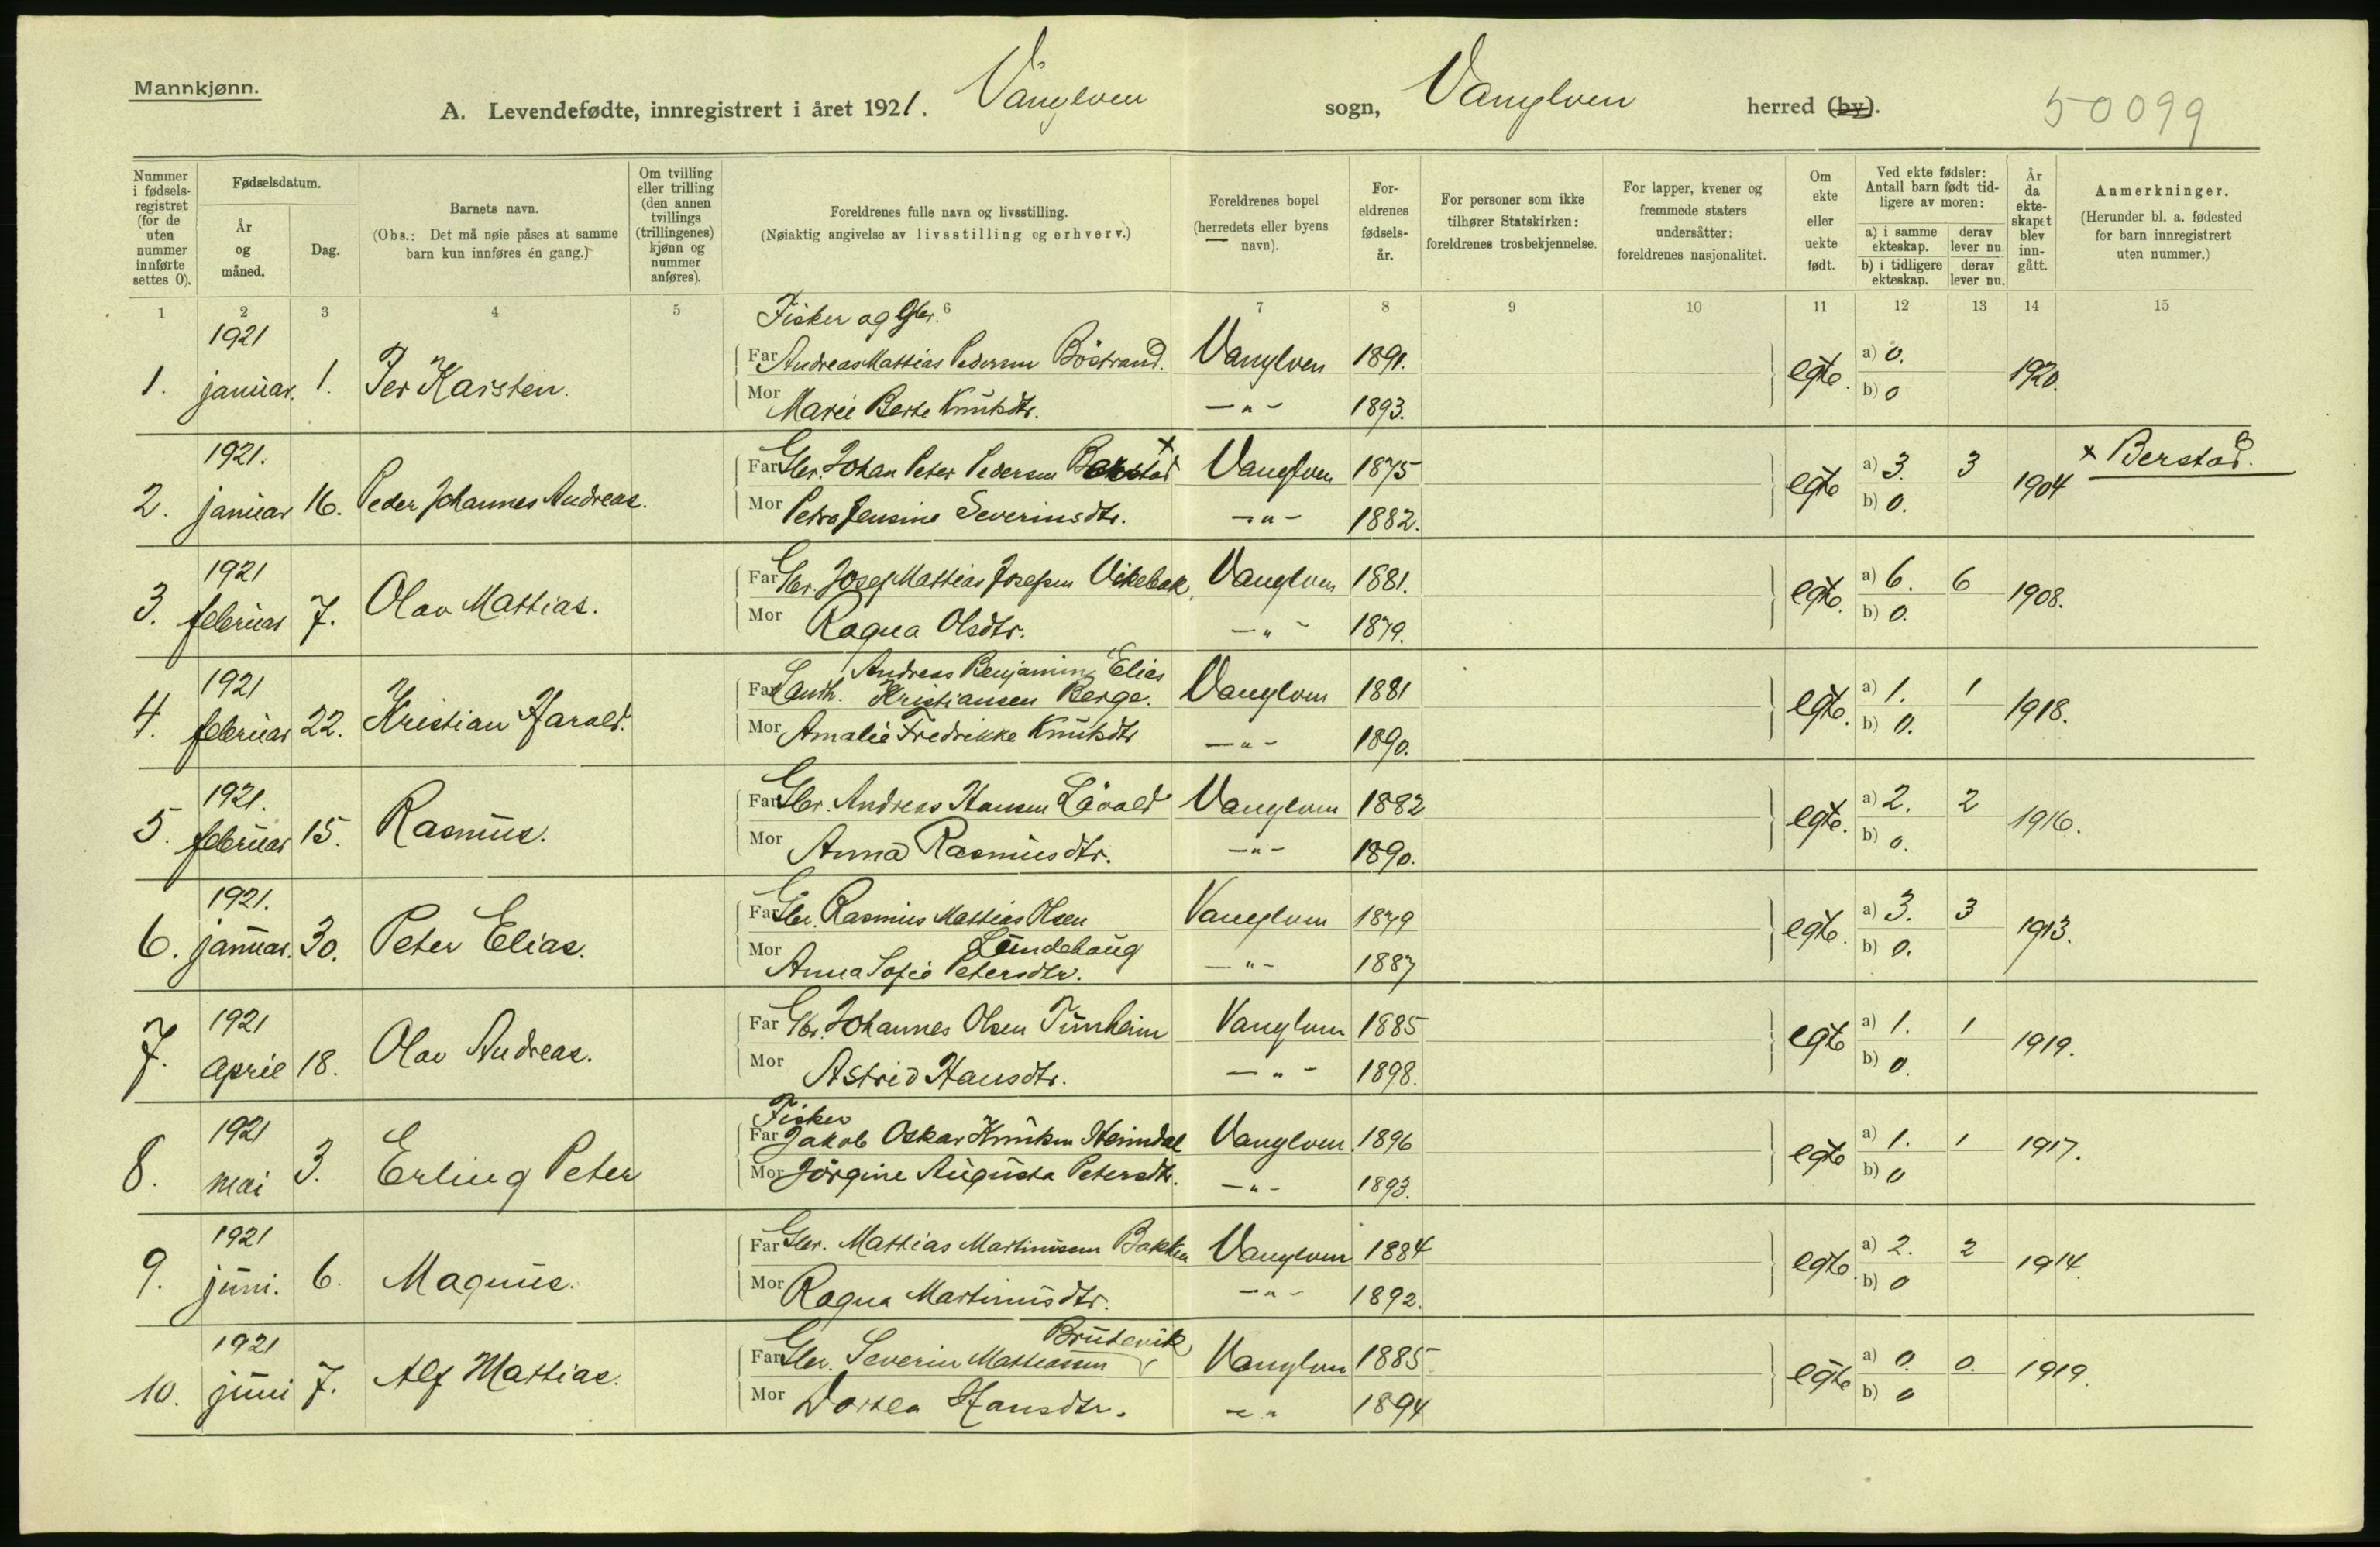 Mannkjønn.
A. Levendefødte, innregistrert i året 1921. Vanylven sogn, Vanylven herred (by). 50099
Nummer i fødsels- registret (for de uten nummer innførte settes 0).
Fødselsdatum.
År og måned.
Dag.
Barnets navn.
(Obs.: Det må nøie påses at samme barn kun innføres én gang.)
Om tvilling eller trilling (den annen tvillings (trillingenes) kjønn og nummer anføres).
Foreldrenes fulle navn og livsstilling.
(Nøiaktig angivelse av livsstilling og erhverv.)
Foreldrenes bopel (herredets eller byens navn).
For- eldrenes fødsels- år.
For personer som ikke tilhører Statskirken: foreldrenes trosbekjennelse.
For lapper, kvener og fremmede staters undersåtter: foreldrenes nasjonalitet.
Om ekte eller uekte født.
Ved ekte fødsler: Antall barn født tid- ligere av moren:
a) i samme ekteskap. derav lever nu
b) i tidligere ekteskap. derav lever nu.
År da ekte- skapet blev inn- gått.
Anmerkninger.
(Herunder bl. a. fødested for barn innregistrert uten nummer.)
1 2 3 4 5 6 7 8 9 10 11 12 13 14 15
1921 Fisker og Gbr.
1. januar. 1. Per Karsten. Far Andreas Mattias Pedersen Böstrand. Vanylven 1891. egte. a) 0. 1920.
Mor Marie Berte Knutsdtr. —"— 1893. b) 0
1921.
2. januar 16. Peder Johannes Andreas. Far Gbr. Johan Peter Pedersen x Vanylven 1875 egte a) 3. 3 1904 x Berstad.
Mor Petra Jensine Severinsdtr. —"— 1882. b) 0.
1921
3. februar 7. Olav Mattias. Far Gbr. Josef Mattias Josefsen Vikebak. Vanylven 1881. egte. a) 6. 6 1908.
Mor Ragna Olsdtr. —"— 1879. b) 0.
1921 Andreas Benjamin Elias
4. februar 22. Kristian Harald. Far Landh. Kristiansen Berge. Vanylven 1881 egte. a) 1. 1 1918.
Mor Amalie Fredrikke Knutsdtr —"— 1890. b) 0.
1921.
5. februar 15. Rasmus. Far Gbr. Andreas Hansen Lövold Vanylven 1882 egte. a) 2. 2 1916.
Mor Anna Rasmusdtr. —"— 1890. b) 0.
1921.
6. januar. 30. Peter Elias. Far Gbr. Rasmus Mattias Olsen Vanylven 1879 egte. a) 3. 3 1913.
Lundehaug
Mor Anna Sofie Petersdtr. —"— 1887 b) 0.
1921
7. april 18. Olav Andreas. Far Gbr. Johannes Olsen Tunheim Vanylven 1885 egte a) 1. 1 1919.
Mor Astrid Hansdtr. —"— 1898. b) 0.
1921 Fisker
8. mai 3. Erling Peter Far Jakob Oskar Knutsen Heimdal Vanylven. 1896 egte a) 1. 1 1917.
Mor Jörgine Augusta Petersdtr. —"— 1893. b) 0
1921
9. juni. 6. Magnus. Far Gbr. Mattias Martinussen Bakken Vanylven 1884 egte. a) 2. 2 1914.
Mor Ragna Martinusdtr. —"— 1892. b) 0
1921 Brudevik
10. juni 7. Alf Mattias. Far Gbr. Severin Matiassen Vanylven 1885 egte a) 0. 0. 1919.
Mor Dortea Hansdtr. —"— 1894 b) 0